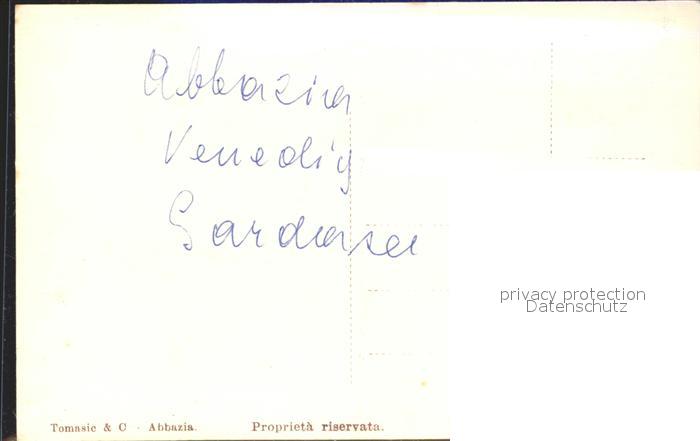 Abbazia
Venedig
Gardasee
privacy protection
Datenschutz
Tomasic & C - Abbazia. Proprietà riservata.